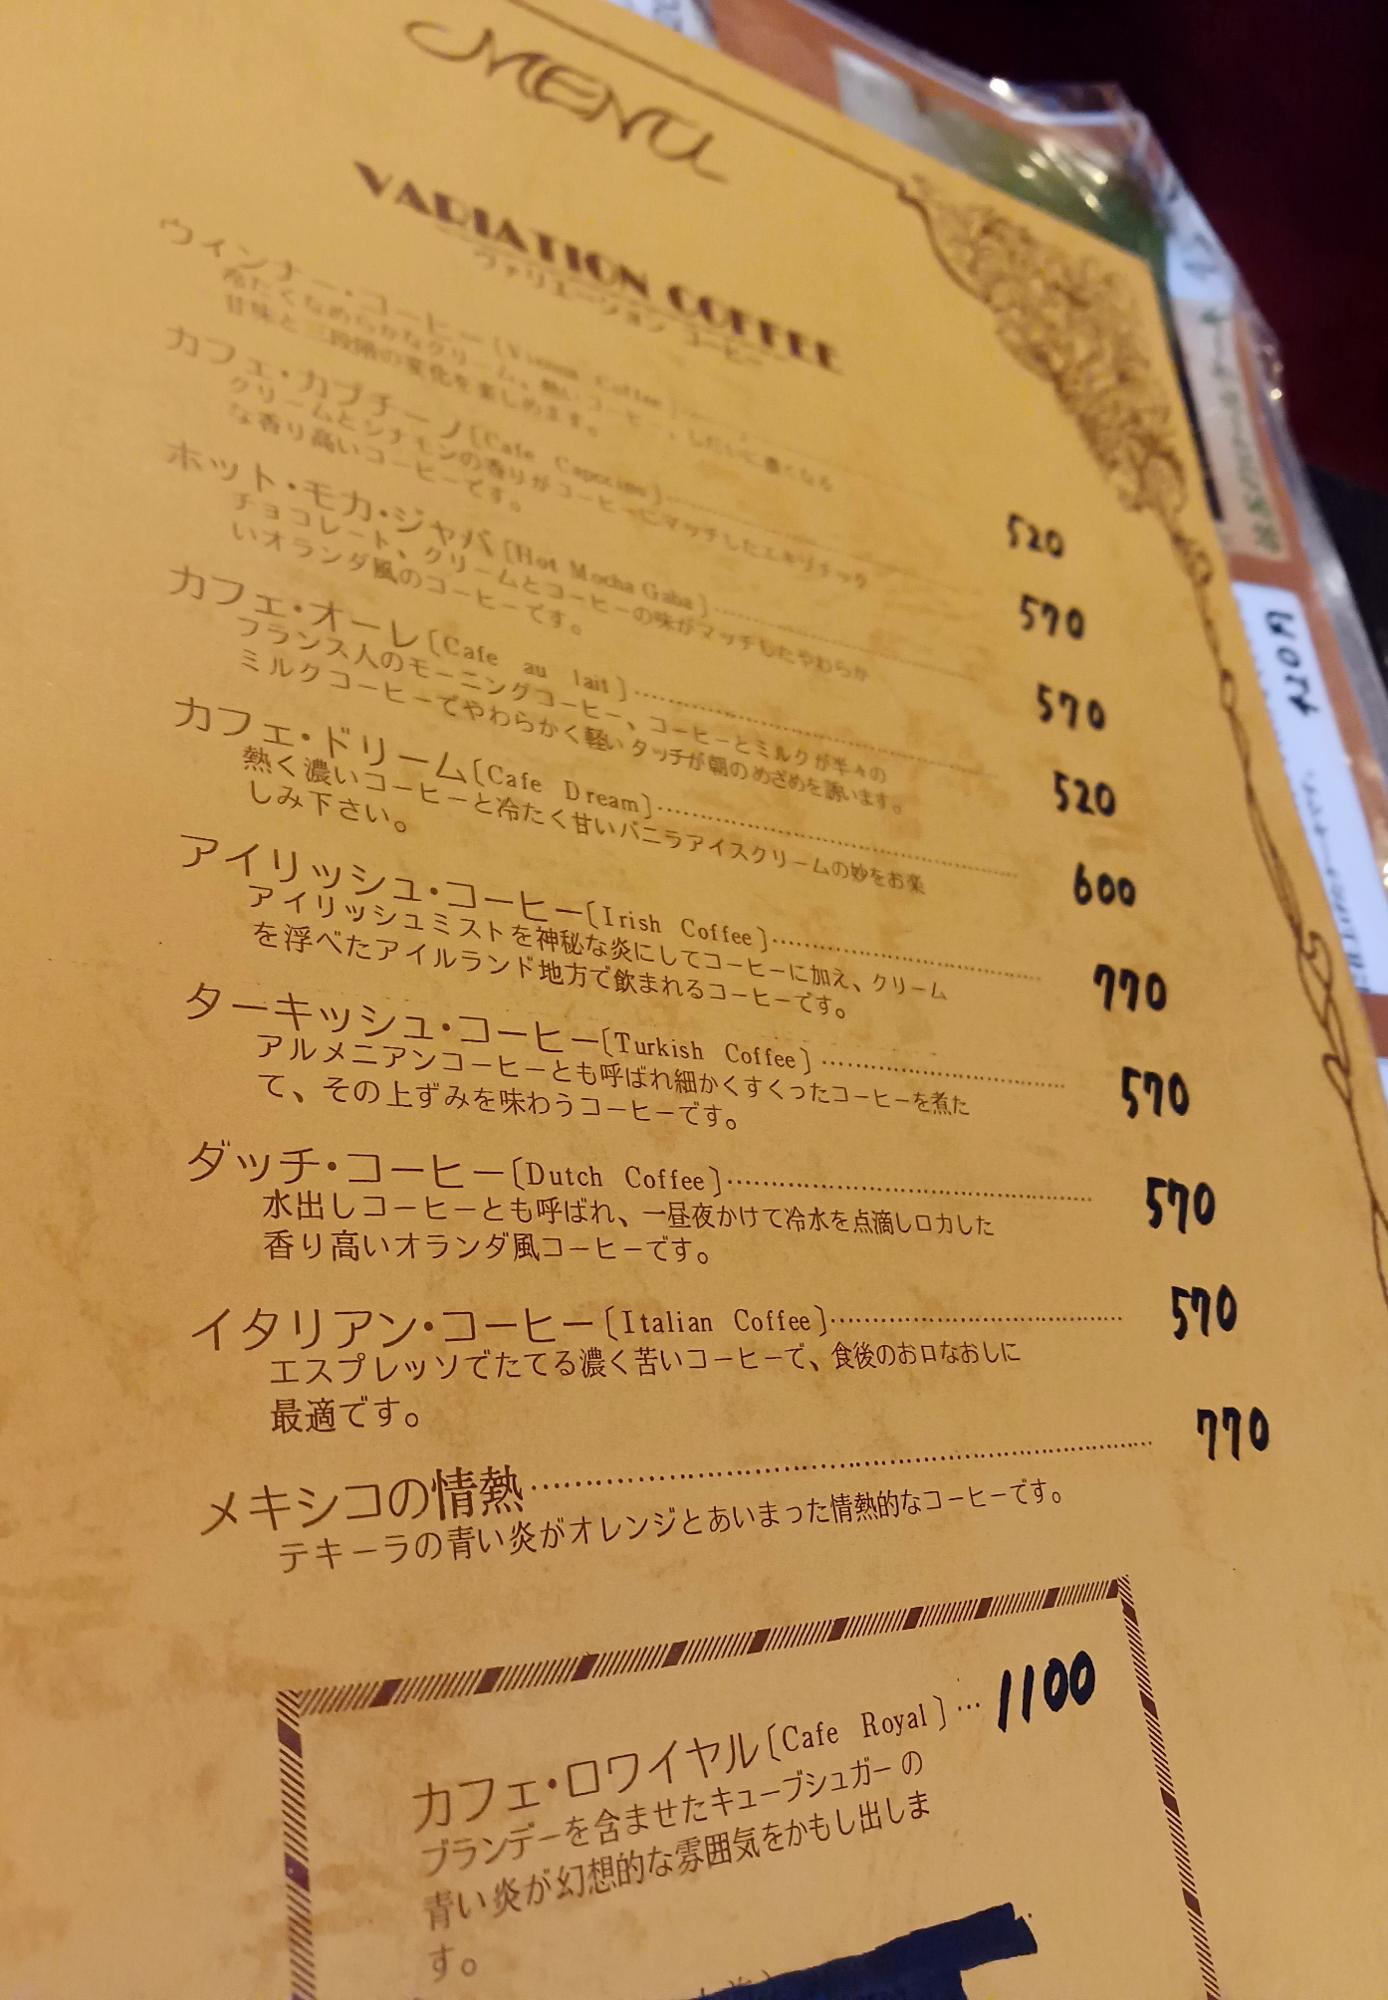 MENU
VARIATION COFFEE
ヴァリエーション コーヒー
ウィンナー・コーヒー〔Vienna Coffee〕 520
冷たくなめらかなクリーム、熱いコーヒー、しだいに濃くなる
甘味と三段階の変化を楽しめます。
カフェ・カプチーノ〔Cafe Capucino〕 570
クリームとシナモンの香りがコーヒーにマッチしたエキゾチック
な香り高いコーヒーです。
ホット・モカ・ジャバ〔Hot Mocha Gaba〕 570
チョコレート、クリームとコーヒーの味がマッチしたやわらか
いオランダ風のコーヒーです。
カフェ・オーレ〔Cafe au lait〕 520
フランス人のモーニングコーヒー、コーヒーとミルクが半々の
ミルクコーヒーでやわらかく軽いタッチが朝のめざめを誘います。
カフェ・ドリーム〔Cafe Dream〕 600
熱く濃いコーヒーと冷たく甘いバニラアイスクリームの妙をお楽
しみ下さい。
アイリッシュ・コーヒー〔Irish Coffee〕 770
アイリッシュミストを神秘な炎にしてコーヒーに加え、クリーム
を浮べたアイルランド地方で飲まれるコーヒーです。
ターキッシュ・コーヒー〔Turkish Coffee〕 570
アルメニアンコーヒーとも呼ばれ細かくすくったコーヒーを煮た
て、その上ずみを味わうコーヒーです。
ダッチ・コーヒー〔Dutch Coffee〕 570
水出しコーヒーとも呼ばれ、一昼夜かけて冷水を点滴しロカした
香り高いオランダ風コーヒーです。
イタリアン・コーヒー〔Italian Coffee〕 570
エスプレッソでたてる濃く苦いコーヒーで、食後のお口なおしに
最適です。
メキシコの情熱 770
テキーラの青い炎がオレンジとあいまった情熱的なコーヒーです。
カフェ・ロワイヤル〔Cafe Royal〕 1100
ブランデーを含ませたキューブシュガーの
青い炎が幻想的な雰囲気をかもし出しま
す。